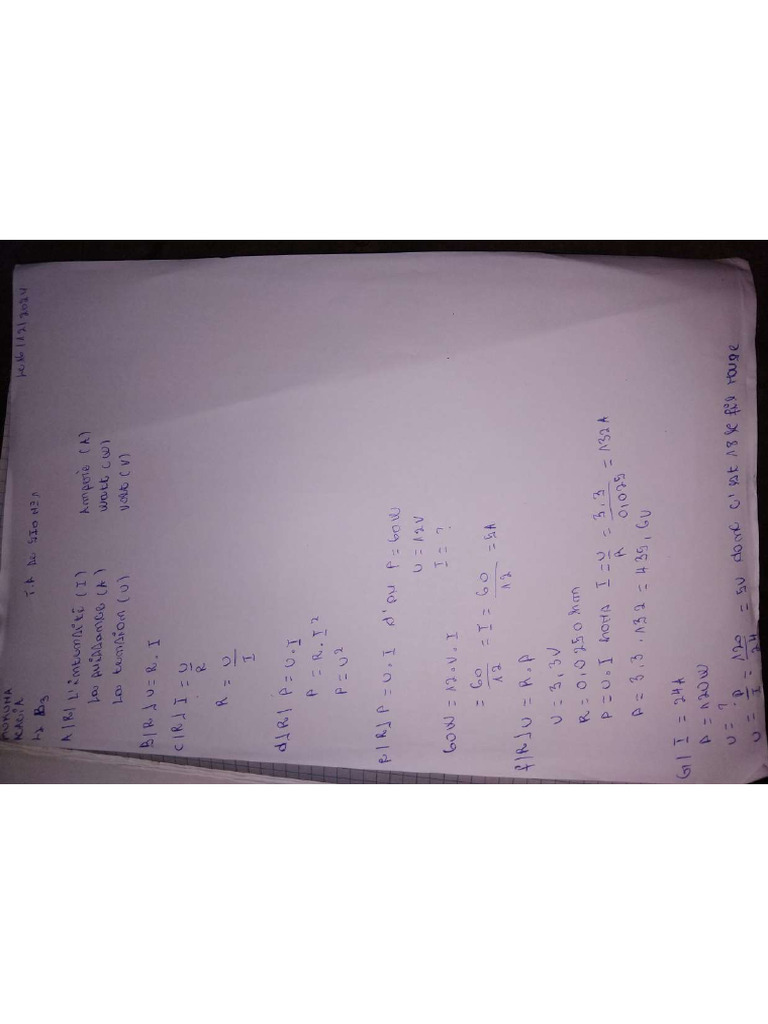 L2 B3
T.P. de
12/2024
A/R/ L'intensité (I) Ampère (A)
La puissance (A) Watt (W)
La tension (U) Volt (V)
B/R/ U = R . I
C/R/ I = U/R
R = U/I
d/R/ P = U.I
P = R.I²
P = U²
P = U.I d'où P = 60W
U = 12V
I = ?
60W = 12.V.I
= 60/12 = I = 60/12 = 5A
f/R/ U = R.P
U = 3,3V
R = 0,025 Ohm
P = U.I I = U/R = 3,3/0,025 = 132A
P = 3,3 . 132 = 435,6
G/ I = 24A
P = 120W
U = ?
U = P/I = 120/24 = 5V donc c'est le fil rouge